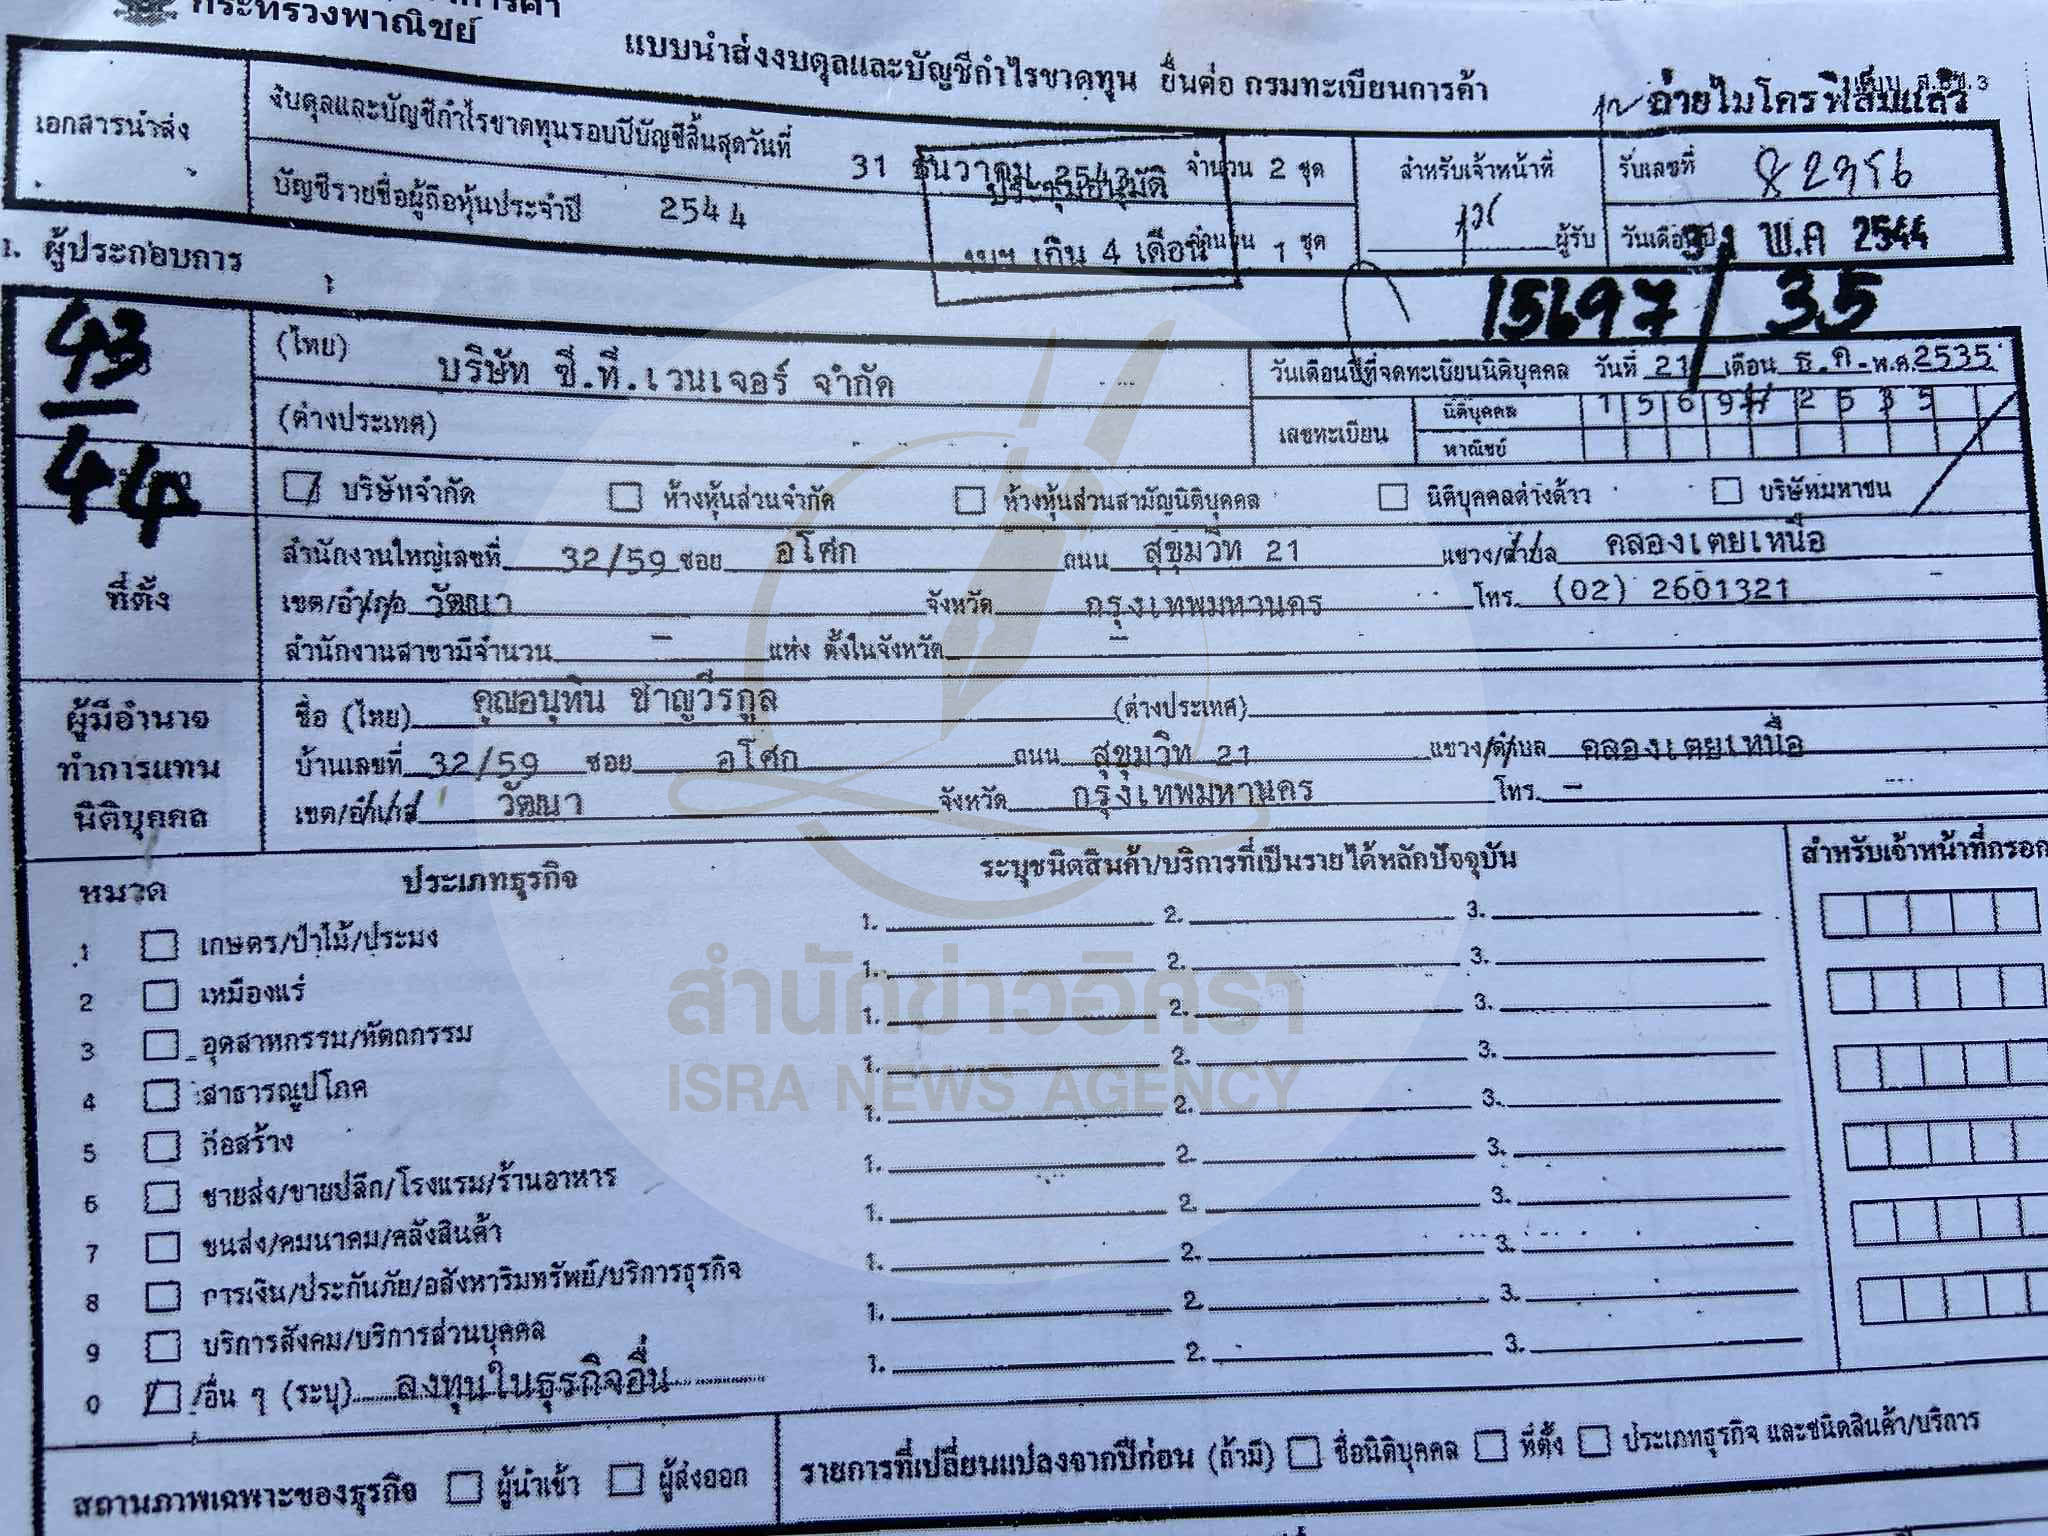 กระทรวงพาณิชย์
แบบนำส่งงบดุลและบัญชีกำไรขาดทุน ยื่นต่อ กรมทะเบียนการค้า
ถ่ายไมโครฟิล์มแล้ว
เอกสารนำส่ง
งบดุลและบัญชีกำไรขาดทุนรอบปีบัญชีสิ้นสุดวันที่ 31 ธันวาคม 2543 จำนวน 2 ชุด
บัญชีรายชื่อผู้ถือหุ้นประจำปี 2544 จำนวน 1 ชุด
ประชุมอนุมัติ
งบฯ เกิน 4 เดือน
สำหรับเจ้าหน้าที่
ผู้รับ
รับเลขที่
วันเดือนปี 31 พ.ค 2544
1. ผู้ประกอบการ
15697/35
43
44
(ไทย) บริษัท ซี.ที.เวนเจอร์ จำกัด
วันเดือนปีที่จดทะเบียนนิติบุคคล วันที่ 21 เดือน ธ.ค. พ.ศ. 2535
(ต่างประเทศ)
เลขทะเบียน
นิติบุคคล 1569 / 2535
พาณิชย์
บริษัทจำกัด ห้างหุ้นส่วนจำกัด ห้างหุ้นส่วนสามัญนิติบุคคล นิติบุคคลต่างด้าว บริษัทมหาชน
ที่ตั้ง
สำนักงานใหญ่เลขที่ 32/59 ซอย อโศก ถนน สุขุมวิท 21 แขวง/ตำบล คลองเตยเหนือ
เขต/อำเภอ วัฒนา จังหวัด กรุงเทพมหานคร โทร. (02) 2601321
สำนักงานสาขามีจำนวน - แห่ง ตั้งในจังหวัด -
ผู้มีอำนาจ
ทำการแทน
นิติบุคคล
ชื่อ (ไทย) คุณอนุทิน ชาญวีรกูล (ต่างประเทศ)
บ้านเลขที่ 32/59 ซอย อโศก ถนน สุขุมวิท 21 แขวง/ตำบล คลองเตยเหนือ
เขต/อำเภอ วัฒนา จังหวัด กรุงเทพมหานคร โทร. -
หมวด ประเภทธุรกิจ ระบุชนิดสินค้า/บริการที่เป็นรายได้หลักปัจจุบัน สำหรับเจ้าหน้าที่กรอก
1 เกษตร/ป่าไม้/ประมง 1. 2. 3.
2 เหมืองแร่ 1. 2. 3.
3 อุตสาหกรรม/หัตถกรรม 1. 2. 3.
4 สาธารณูปโภค 1. 2. 3.
5 ก่อสร้าง 1. 2. 3.
6 ขายส่ง/ขายปลีก/โรงแรม/ร้านอาหาร 1. 2. 3.
7 ขนส่ง/คมนาคม/คลังสินค้า 1. 2. 3.
8 การเงิน/ประกันภัย/อสังหาริมทรัพย์/บริการธุรกิจ 1. 2. 3.
9 บริการสังคม/บริการส่วนบุคคล 1. 2. 3.
0 อื่น ๆ (ระบุ) ลงทุนในธุรกิจอื่น 1. 2. 3.
สำนักข่าวอิศรา
ISRA NEWS AGENCY
สถานภาพเฉพาะของธุรกิจ ผู้นำเข้า ผู้ส่งออก
รายการที่เปลี่ยนแปลงจากปีก่อน (ถ้ามี) ชื่อนิติบุคคล ที่ตั้ง ประเภทธุรกิจ และชนิดสินค้า/บริการ